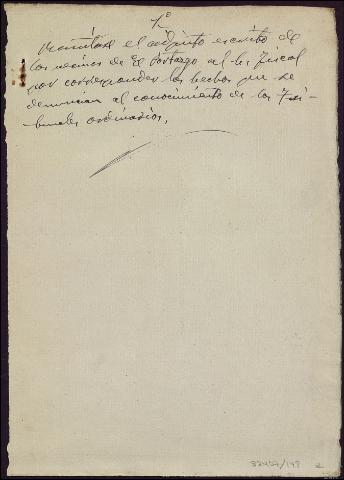 1º
Remítase el adjunto escrito de
los vecinos de El Portazgo al Sr Fiscal
por corresponder los hechos que se
denuncian al conocimiento de los Tri-
bunales ordinarios.